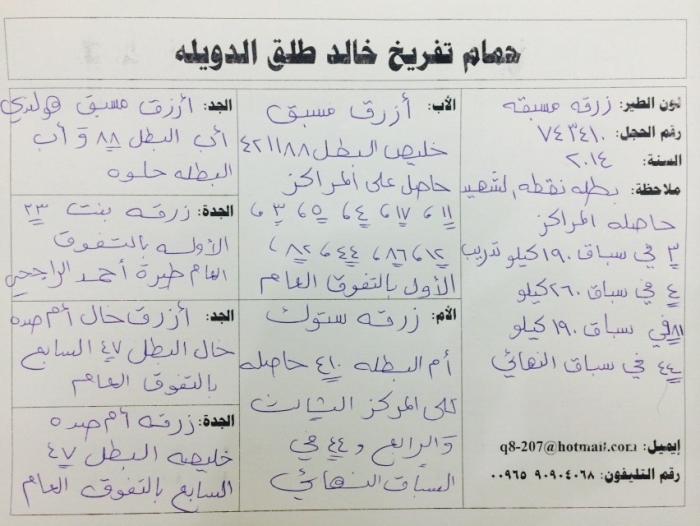 حمام تفريخ خالد طلق الدويله
لون الطير: زرقه مسبقه
رقم الحجل: ٧٤٣٤١٠
السنة: ٢٠١٤
ملاحظة: بطله نقطه الشهيد
حاصله المراكز
٣ في سباق ١٩٠ كيلو تدريب
٤ في سباق ٢٦٠ كيلو
٨١ في سباق ١٩٠ كيلو
٤٤ في سباق النهائي
إيميل: q8-207@hotmail.com
رقم التليفون: ٠٠٩٦٥ ٩٠٩٠٤٠٦٨
الأب: أزرق مسبق
خليص البطل ٤٢١١٨٨
حاصل على المراكز
١١، ١٧، ٤، ٥، ٣،
١٢، ٨٦، ٤٤، ٨٢،
الأول بالتفوق العام
الأم: زرقه ستوك
أم البطله ٤١٠ حاصله
على المركز الثالث
والرابع و ٤٤ في
السباق النهائي
الجد: أزرق مسبق هولندي
أب البطل ٨٨ و أب
البطله حلوه
الجدة: زرقه بنت ٢٣
الأوله بالتفوق
العام طيرة أحمد الراجحي
الجد: أزرق خال أم صده
خال البطل ٤٧ السابع
بالتفوق العام
الجدة: زرقه أم صده
خليصه البطل ٤٧
السابع بالتفوق العام